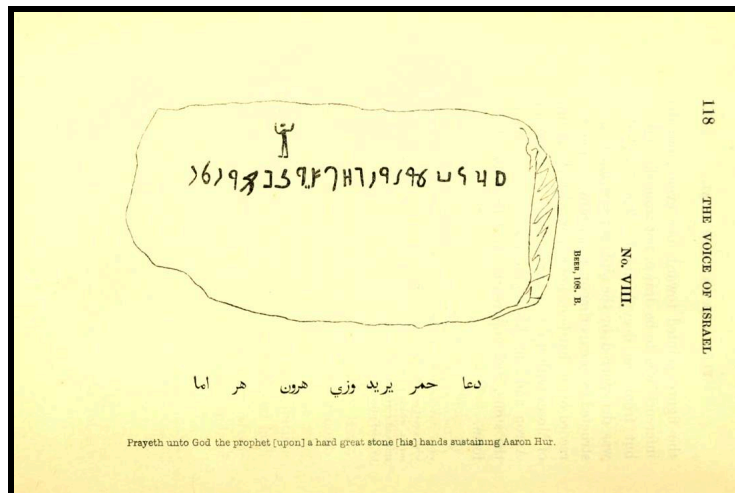 118 THE VOICE OF ISRAEL
No. VIII.
BEER, 108. B.
دعا حمر يريد وزي هرون هر اما
Prayeth unto God the prophet [upon] a hard great stone [his] hands sustaining Aaron Hur.